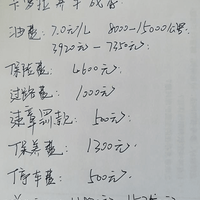 卡罗拉养车成本:
油费: 7.0元/L 8000-15000公里
3920元-7350元
保险费: 4600元
过路费: 1000元
违章罚款: 500元
保养费: 1300元
停车费: 500元